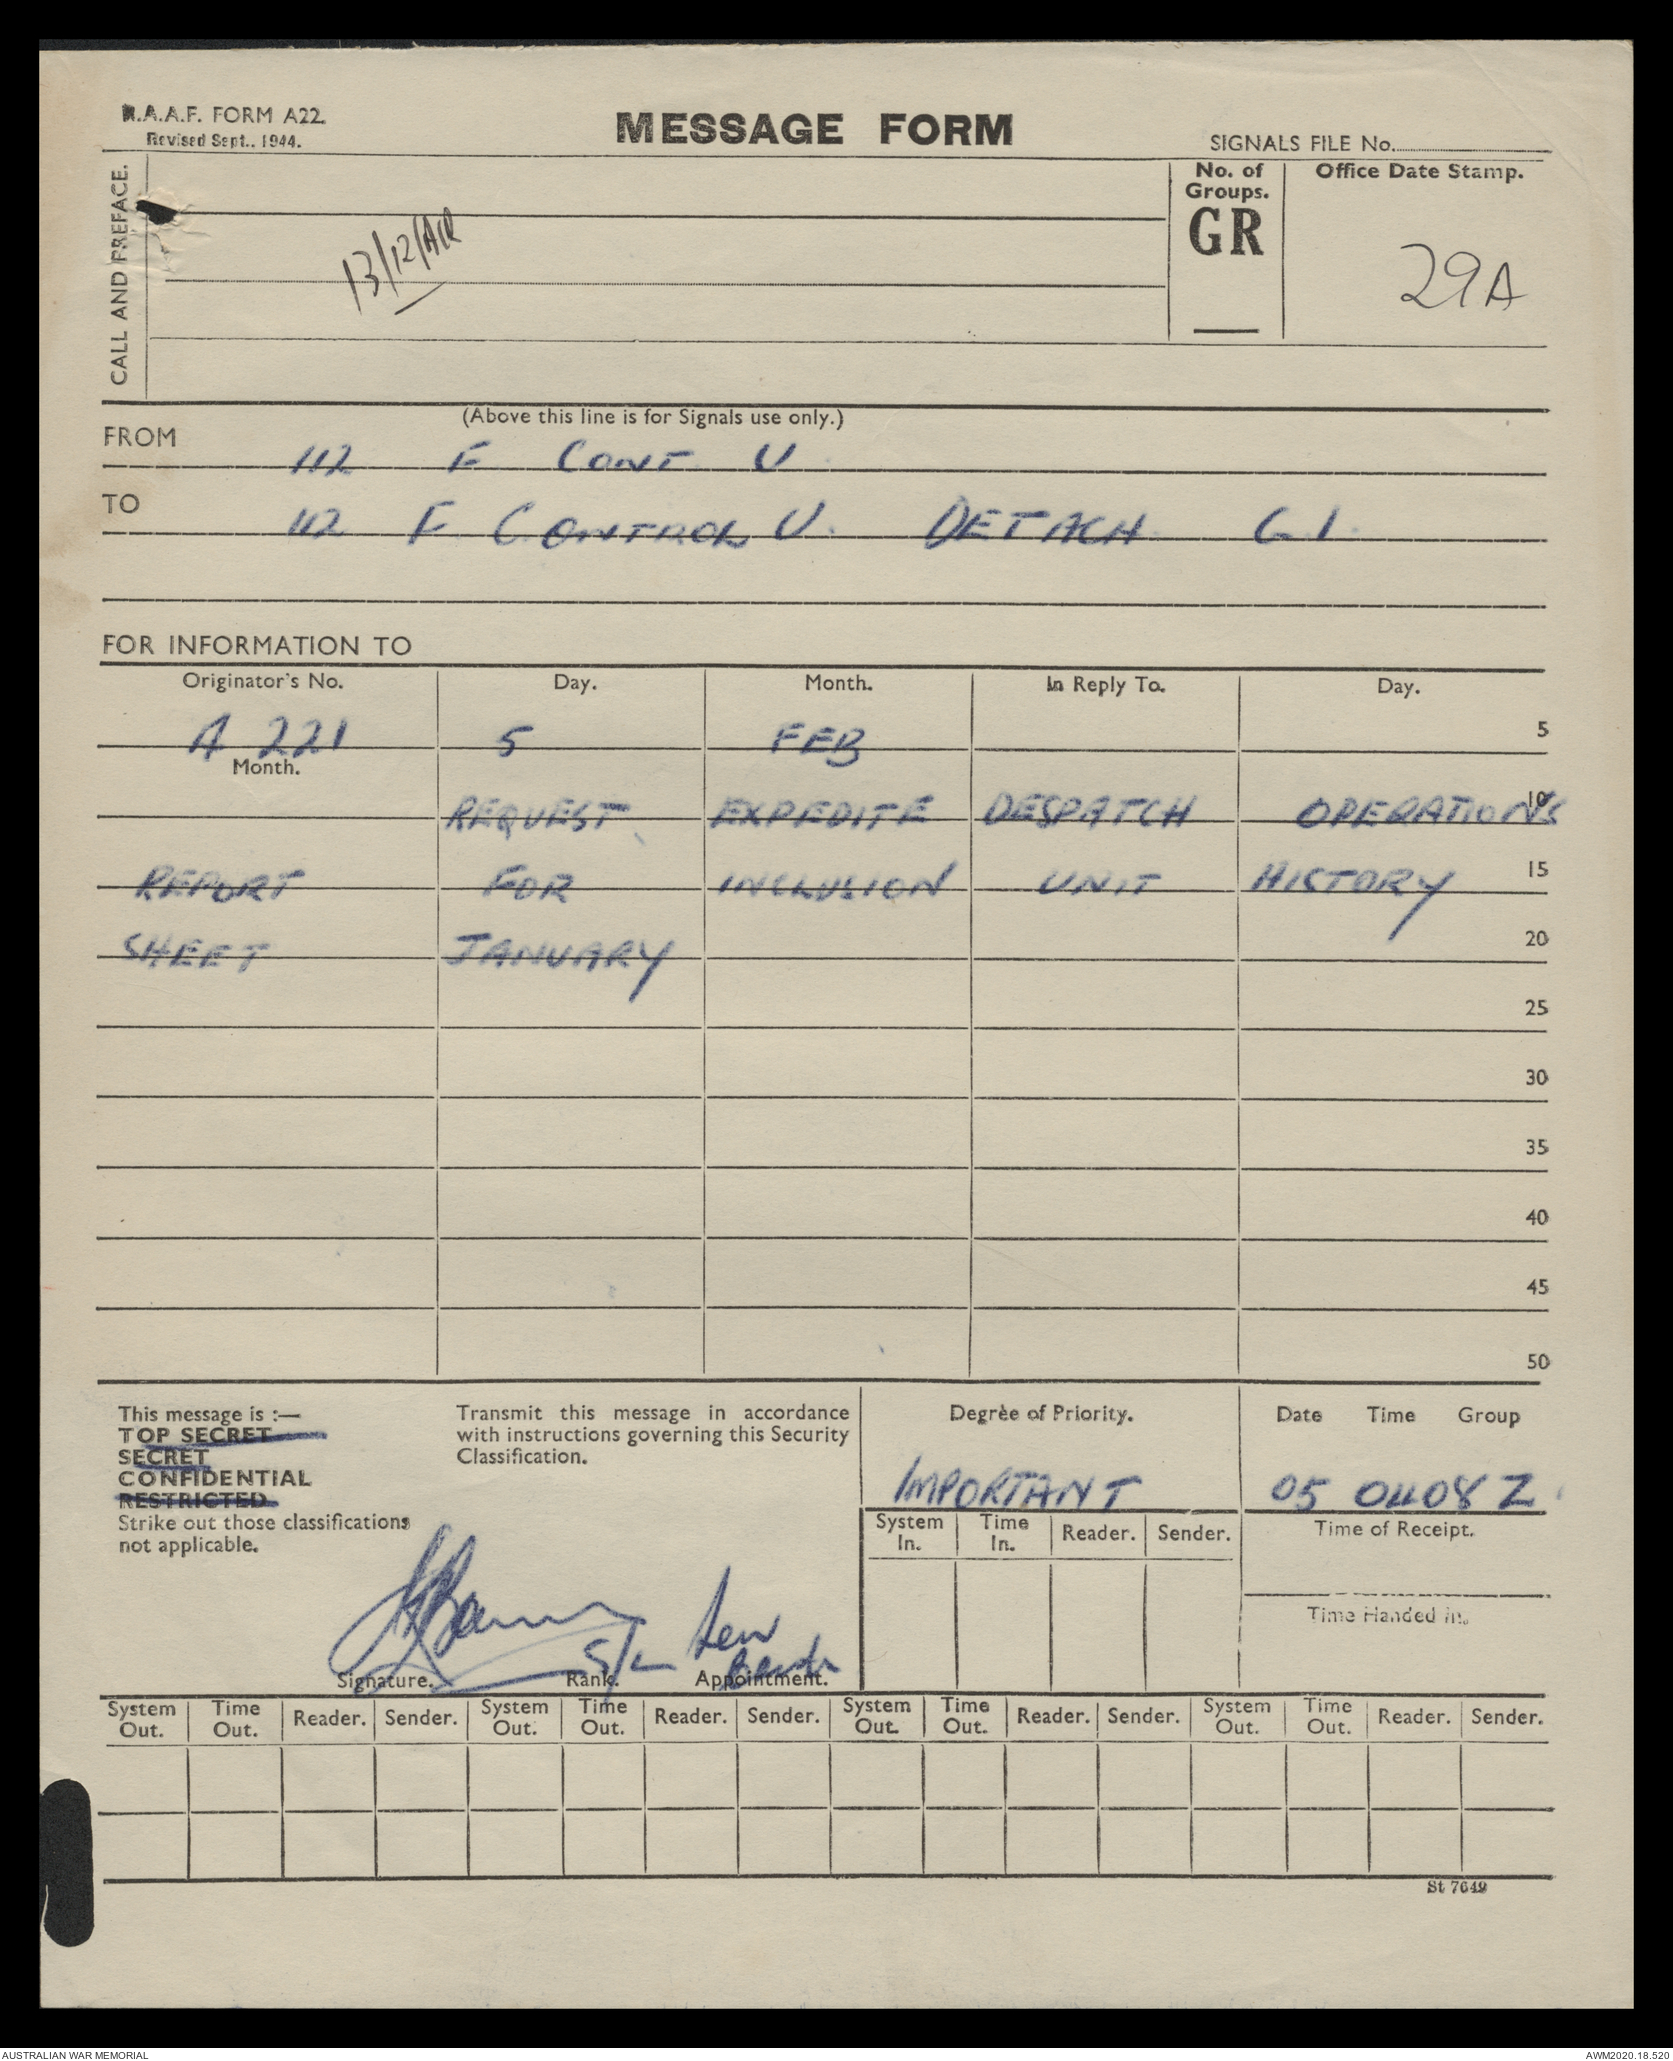 R.A.A.F. FORM A22.
Revised Sept., 1944.
MESSAGE FORM
SIGNALS FILE No.
CALL AND PREFACE.
No. of
Groups.
GR
Office Date Stamp.
13/12/AIR
29A
(Above this line is for Signals use only.)
FROM 112 F CONT U
TO 112 F CONTROL U. DETACH G.I.
FOR INFORMATION TO
Originator's No. Day. Month. In Reply To. Day.
A 221 5 FEB 5
Month.
REQUEST EXPEDITE DESPATCH OPERATIONS 10
REPORT FOR INCLUSION UNIT HISTORY 15
SHEET JANUARY 20
25
30
35
40
45
50
This message is :—
TOP SECRET
SECRET
CONFIDENTIAL
RESTRICTED
Strike out those classifications
not applicable.
Transmit this message in accordance
with instructions governing this Security
Classification.
Degree of Priority.
IMPORTANT
Date Time Group
05 0408 Z
System In. Time In. Reader. Sender.
Time of Receipt.
Time Handed in.
S/L
Signature. Rank. Appointment.
System Out. Time Out. Reader. Sender. System Out. Time Out. Reader. Sender. System Out. Time Out. Reader. Sender. System Out. Time Out. Reader. Sender.
St 7649
AUSTRALIAN WAR MEMORIAL
AWM2020.18.520